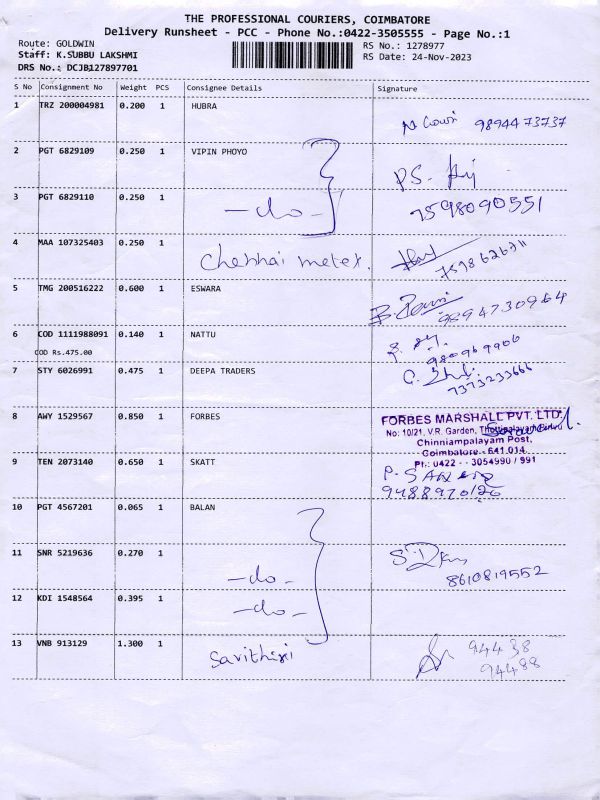 THE PROFESSIONAL COURIERS, COIMBATORE
Delivery Runsheet - PCC - Phone No.:0422-3505555 - Page No.:1
Route: GOLDWIN
Staff: K.SUBBU LAKSHMI
DRS No.: DCJB127897701
RS No.: 1278977
RS Date: 24-Nov-2023
S No Consignment No Weight PCS Consignee Details Signature
1 TRZ 200004981 0.200 1 HUBRA
9894473737
2 PGT 6829109 0.250 1 VIPIN PHOYO
P.S.
3 PGT 6829110 0.250 1 -do-
7598090551
4 MAA 107325403 0.250 1 Chennai meter.
5 TMG 200516222 0.600 1 ESWARA
9894730964
6 COD 1111988091 0.140 1 NATTU
COD Rs.475.00
7 STY 6026991 0.475 1 DEEPA TRADERS
7373233666
8 AWY 1529567 0.850 1 FORBES
FORBES MARSHALL PVT. LTD.
No: 10/21, V.R. Garden,
Chinniampalayam Post,
Coimbatore - 641 014.
Ph.: 0422 - 3054990 / 991
9 TEN 2073140 0.650 1 SKATT
9488970126
10 PGT 4567201 0.065 1 BALAN
11 SNR 5219636 0.270 1 -do-
8610819552
12 KDI 1548564 0.395 1 -do-
13 VNB 913129 1.300 1 Savithiri
94438
94488